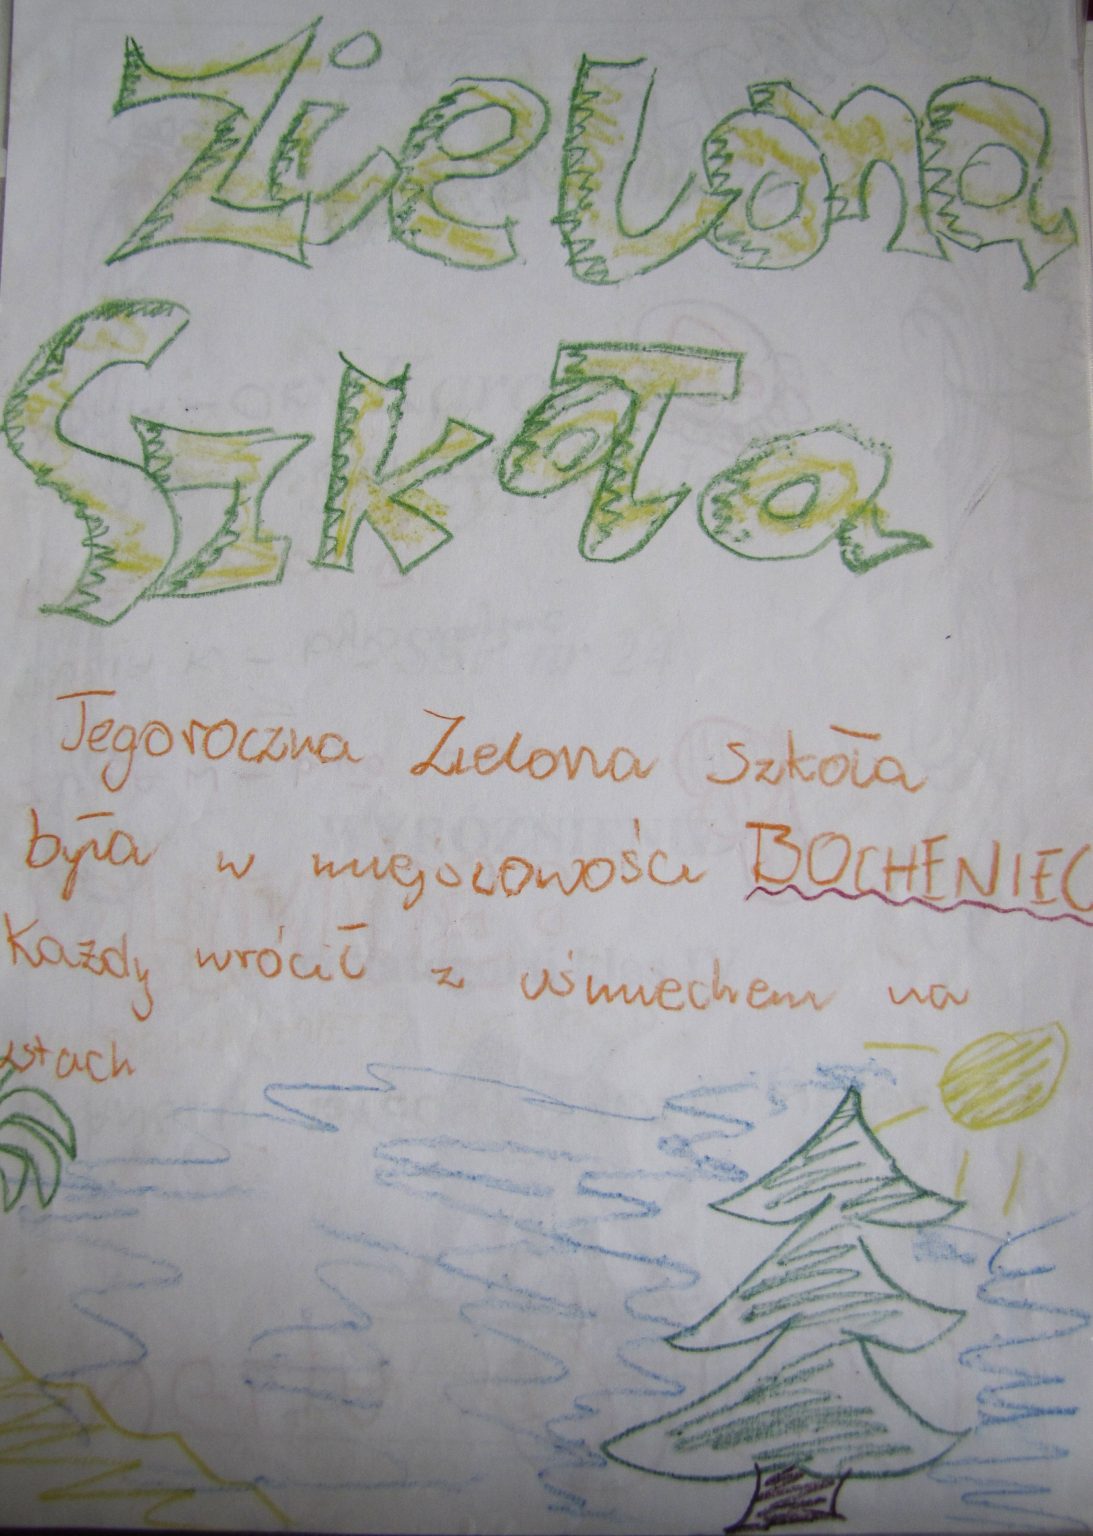 Zielona
Szkoła
Tegoroczna Zielona Szkoła
była w miejscowości BOCHENIEC
Każdy wrócił z uśmiechem na
ustach